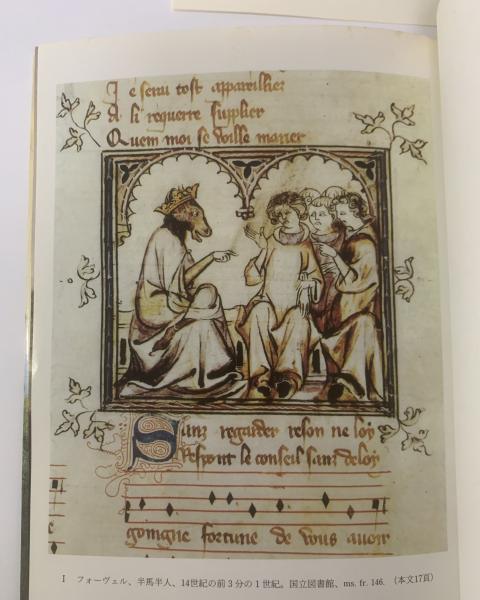 Je seray tost appareillier
A li requerre supplier
Quem moi se voille marier
Sanz regarder reson ne loy
Respont le conseil sanz deloy
goingne fortune de vous avoir
I フォーヴェル、半馬半人、14世紀の前3分の1世紀。国立図書館、ms. fr. 146. （本文17頁）